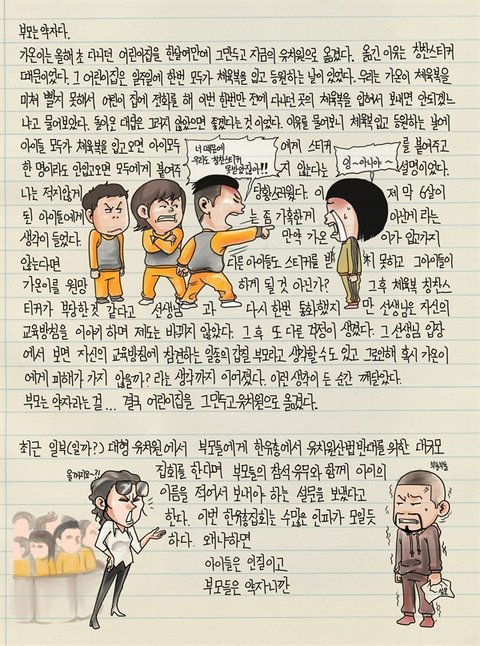 부모는 약자다.
가온이는 올해 초 다니던 어린이집을 한달여만에 그만두고 지금의 유치원으로 옮겼다. 옮긴 이유는 칭찬스티커
때문이었다. 그 어린이집은 일주일에 한번 모두가 체육복을 입고 등원하는 날이 있었다. 우리는 가온이 체육복을
미처 빨지 못해서 어린이 집에 전화를 해 이번 한번만 전에 다녔던 곳의 체육복을 입혀서 보내면 안되겠느
냐고 물어보았다. 돌아온 대답은 그러지 않았으면 좋겠다는 것이었다. 이유를 물어보니 체육복 입고 등원하는 날에
아이들 모두가 체육복을 입고오면 아이모두에게 스티커를 붙여주고
한 명이라도 안입고오면 모두에게 붙여주지 않는다는 설명이었다.
너 때문에
우리도 칭찬스티커
못받았잖아!!
엄~아니야~
나는 적지않게 당황스러웠다. 이제 막 6살이
된 아이들에게는 좀 가혹한게 아닌가 라는
생각이 들었다. 만약 가온이가 입고가지
않는다면 다른 아이들도 스티커를 받지 못하고 그아이들이
가온이를 원망하게 될 것 아닌가? 그후 체육복 칭찬스
티커가 부당한것 같다고 선생님과 다시 한번 통화했지만 선생님은 자신의
교육방침을 이야기 하며 제도는 바뀌지 않았다. 그 후 또 다른 걱정이 생겼다. 그 선생님 입장
에서 보면 자신의 교육방침에 참견하는 일종의 갑질 부모라 생각할수도 있고 그로인해 혹시 가온이
에게 피해가 가지 않을까? 라는 생각까지 이어졌다. 이런 생각이 든 순간 깨달았다.
부모는 약자라는 걸... 결국 어린이집을 그만두고 유치원으로 옮겼다.
최근 일부(일까?) 대형 유치원에서 부모들에게 한유총에서 유치원산법 반대를 위한 대규모
집회를 한다며 부모들의 참석 유무와 함께 아이의
이름을 적어서 보내야 하는 설문을 보냈다고
한다. 이번 한유총집회는 수많은 인파가 모일듯
하다. 왜냐하면
아이들은 인질이고
부모들은 약자니깐
올꺼지요~?!
부들부들
설문